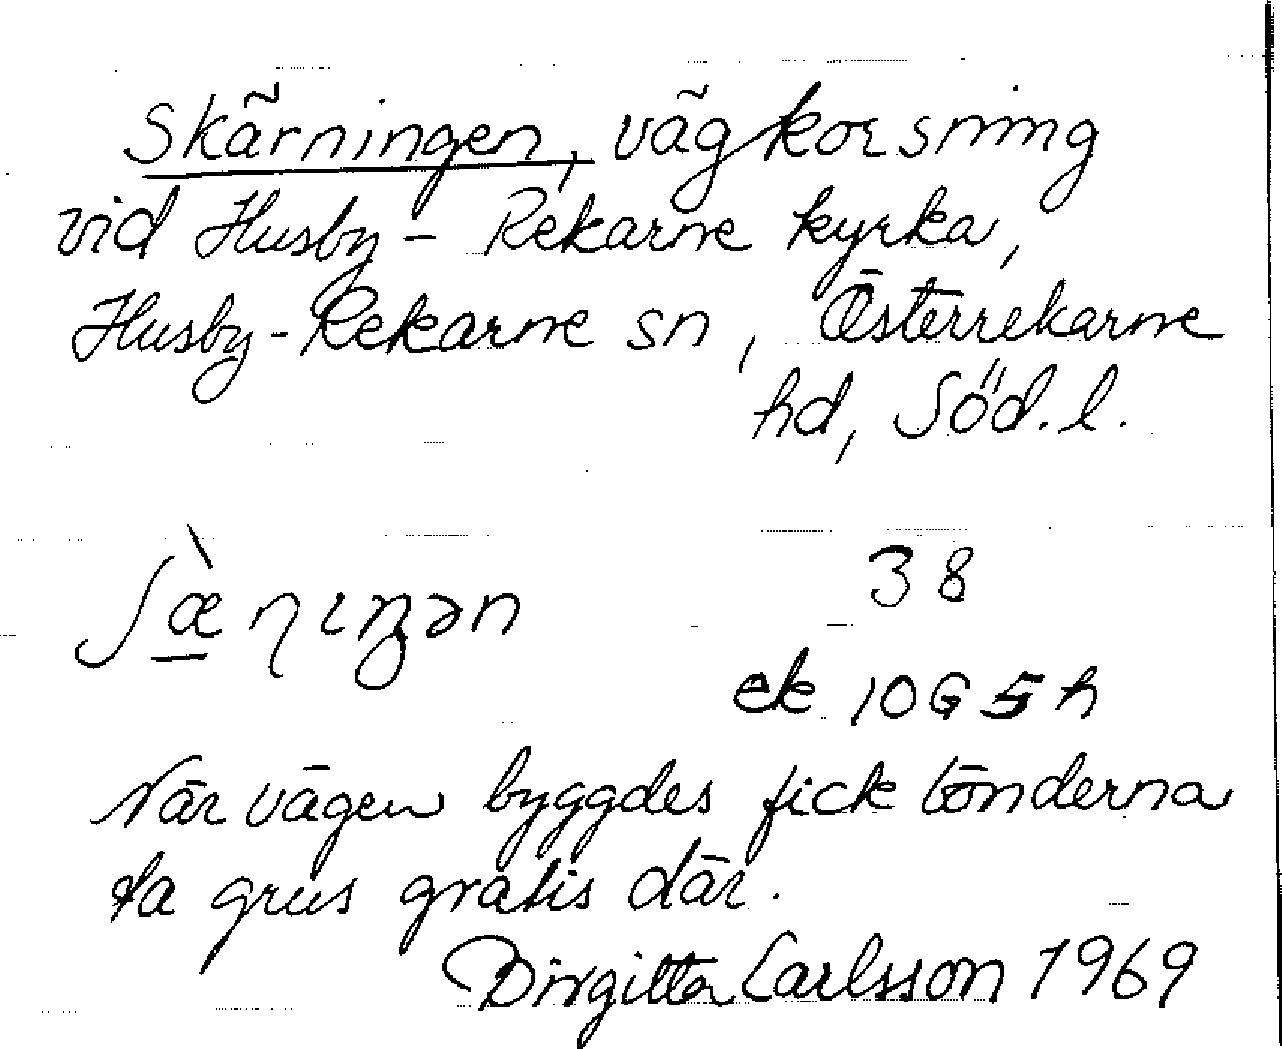 Skärningen, vägkorsning
vid Husby-Rekarne kyrka,
Husby-Rekarne sn, Österrekarne
hd, Söd. l.
ʃæ̠̀ɳɩŋən
38
ek 10G5h
När vägen byggdes fick bönderna
ta grus gratis där.
Birgitta Carlsson 1969